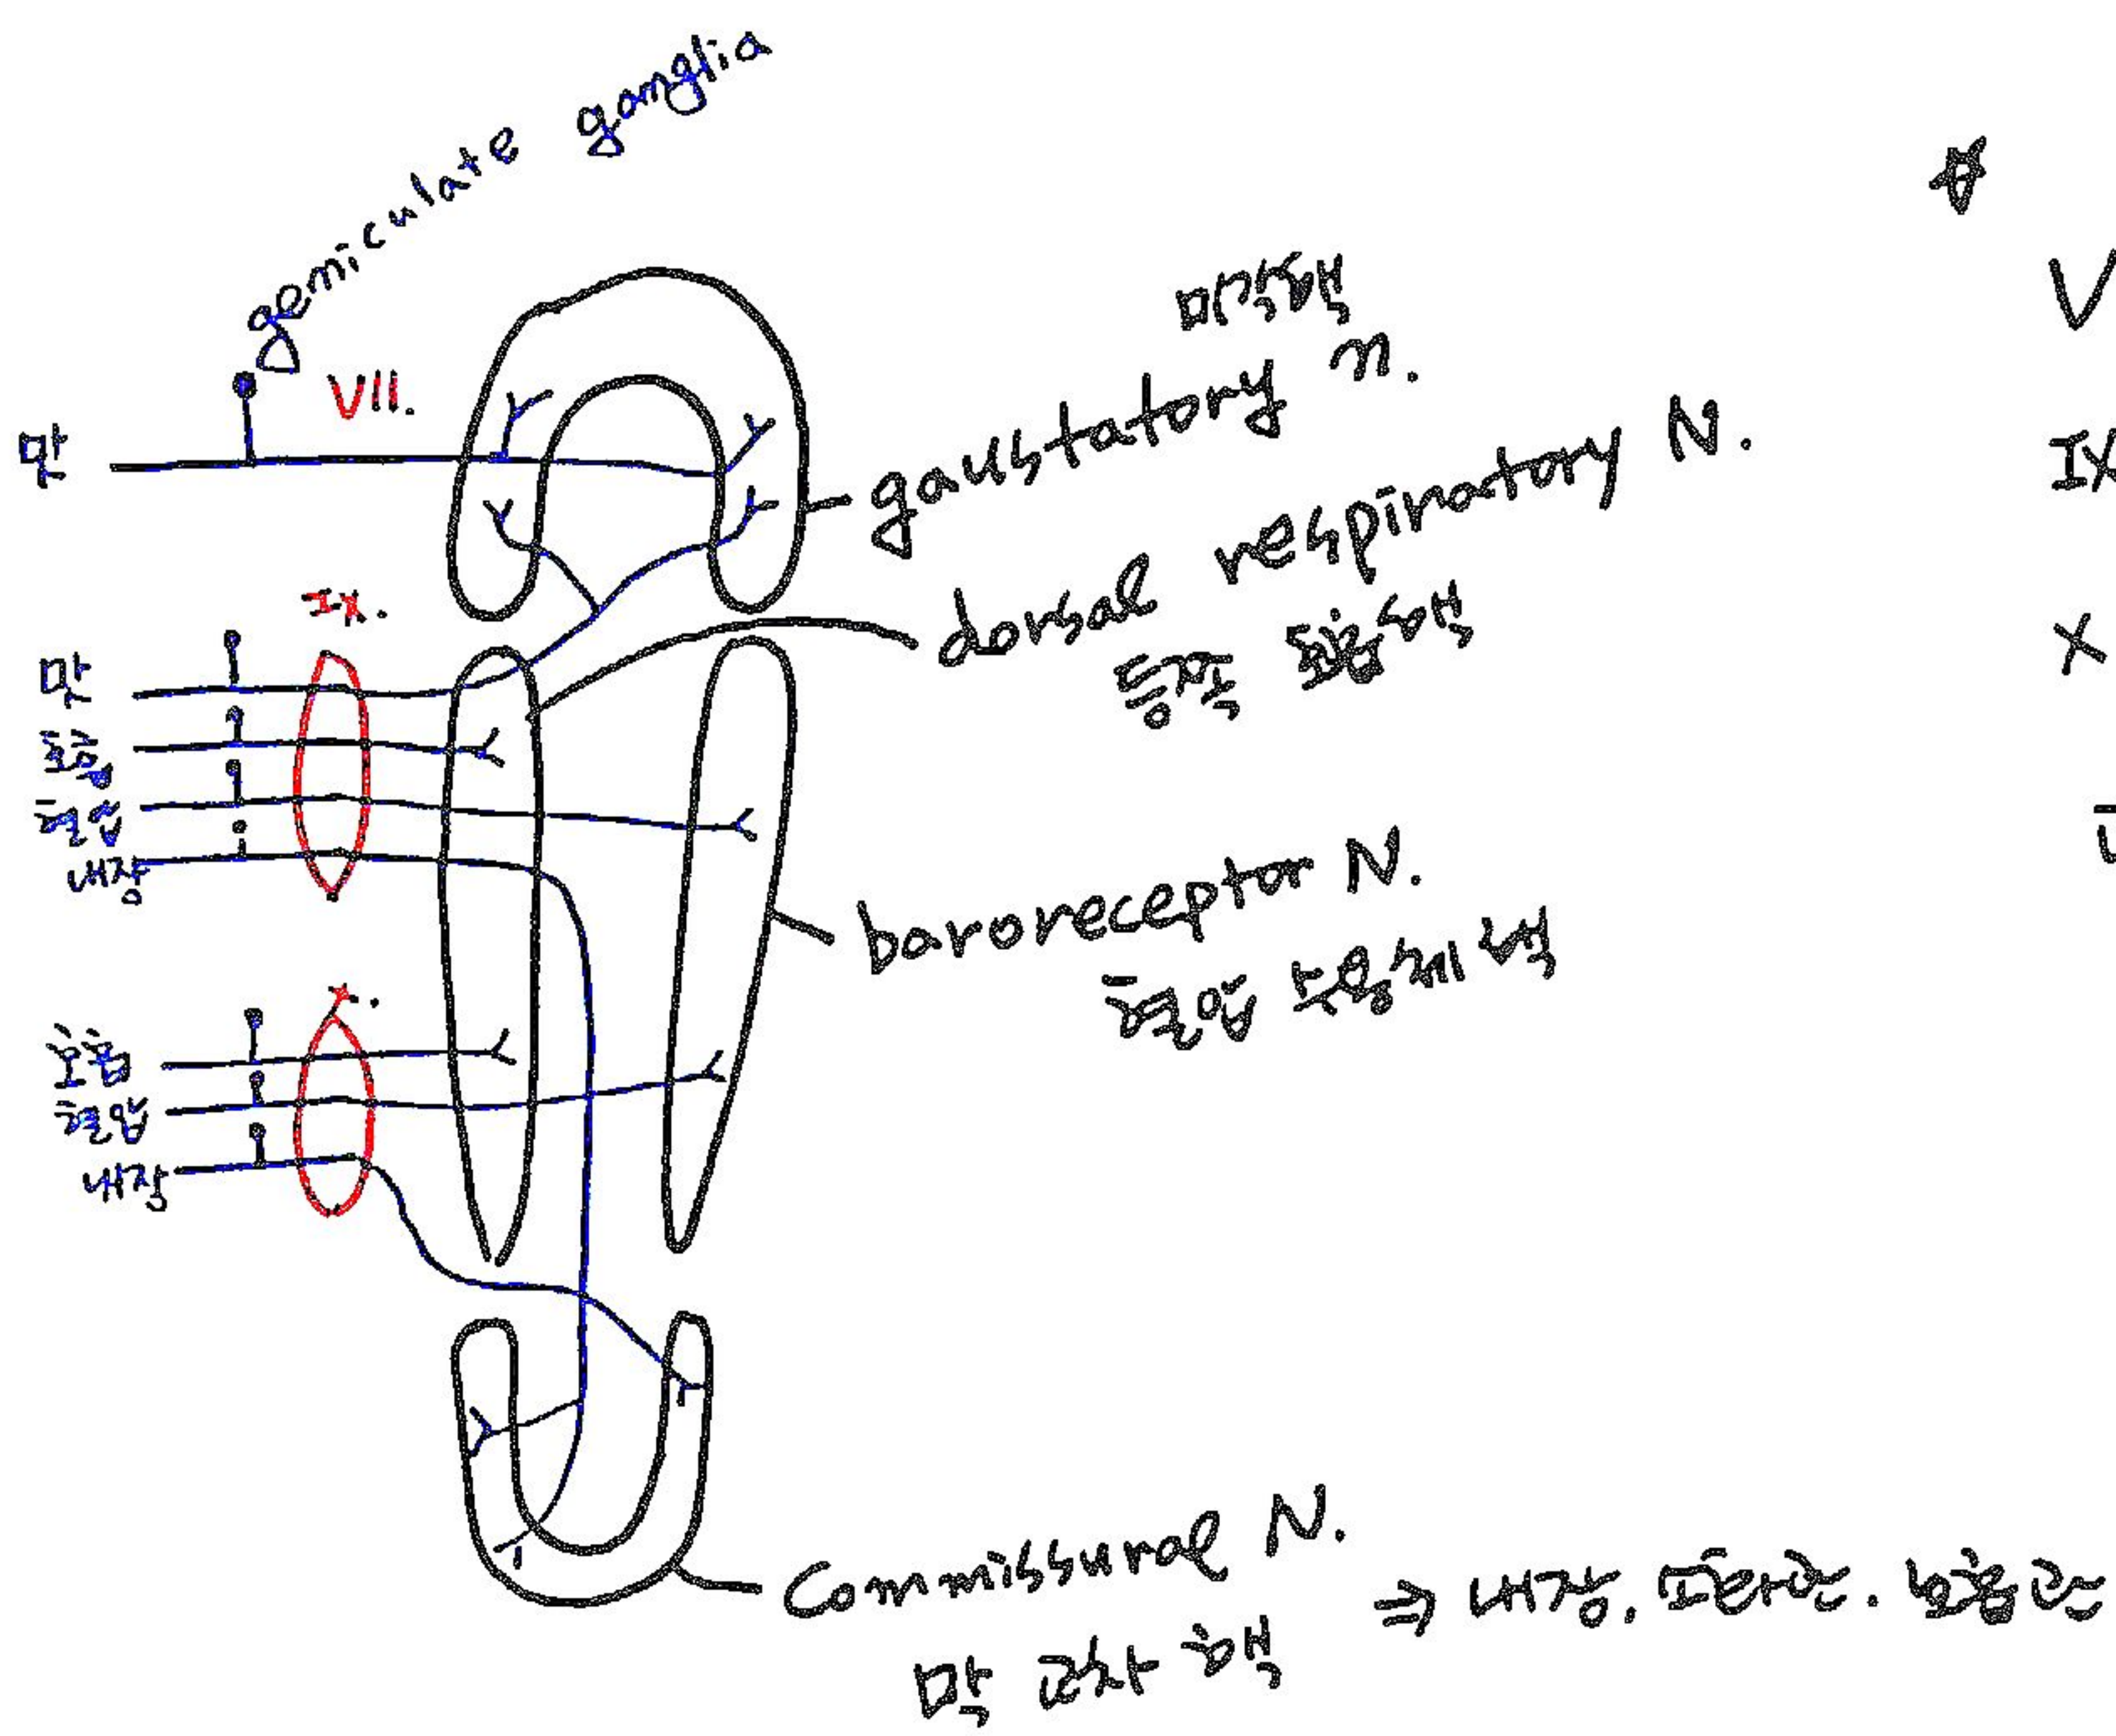 geniculate ganglia
VII.
맛
미각핵
gaustatory n.
dorsal respiratory N.
등쪽 호흡핵
IX.
맛
호흡
혈압
내장
baroreceptor N.
혈압 수용체 핵
X.
호흡
혈압
내장
Commissural N.
맛 교차 핵
⇒ 내장.
☆
V
IX
X